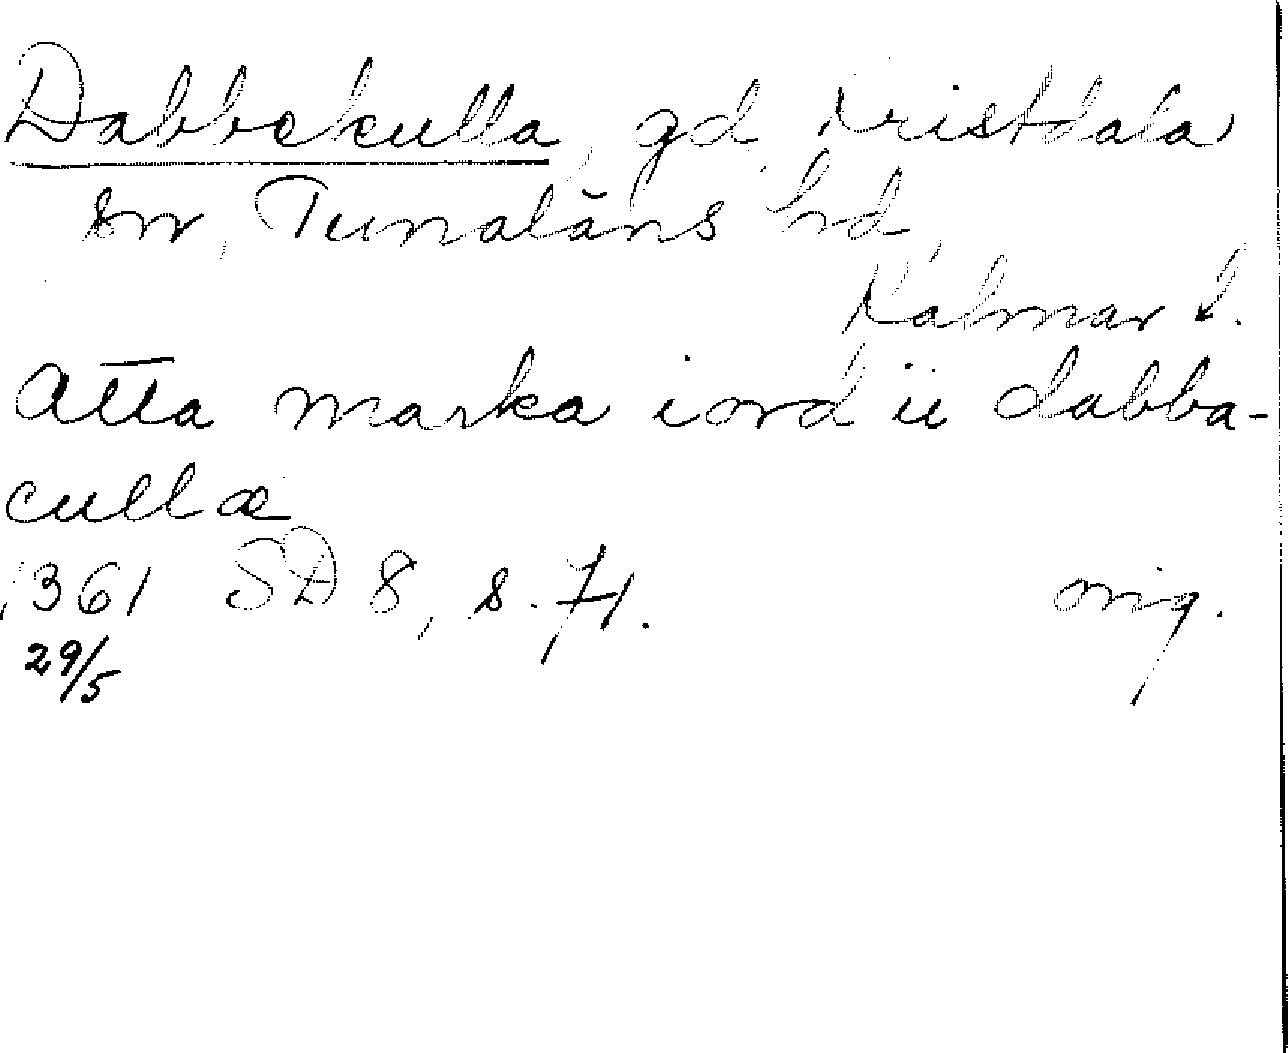 Dabbekulla, gd, Kristdala
sn, Tunaläns hd,
Kalmar l.
atta marka iord ii dabba-
cullæ
1361 SD 8, s. 71. orig.
29/5